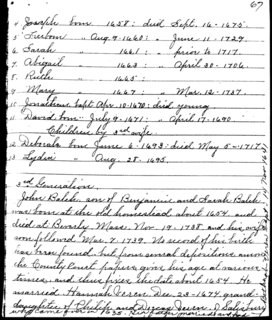 67
4 Joseph born 1658: died Sept. 16-1675.
5 Freborn " Aug. 9-1660: " June 11-1729.
6 Sarah " 1661: " prior to 1717.
7 Abigail " 1663: " April 30-1706.
8 Ruth " 1665:
9 Mary " 1667: " Mar. 12-1737.
10 Jonathan bapt Apr. 10-1670: died young.
11 David born July 9-1671: " April 17-1690.
Children by 3rd wife
12 Deborah born June 6-1693: died May 5-1717.
13 Lydia " Aug. 28-1695.
3rd Generation.
John Balch, son of Benjamin and Sarah Balch
was born at the old homestead about 1654 and
died at Beverly Mass. Nov. 19-1738 and his
followed Mar. 7 1739. No record of his birth
has been found, but from several depositions among
the County Court papers gives his age at various
times, and thus fixes the date about 1654. He
married Hannah Veren Dec. 23-1674 grand
daughter of Philip and Dorcas Veren of Salisbury
who came over in 1635.